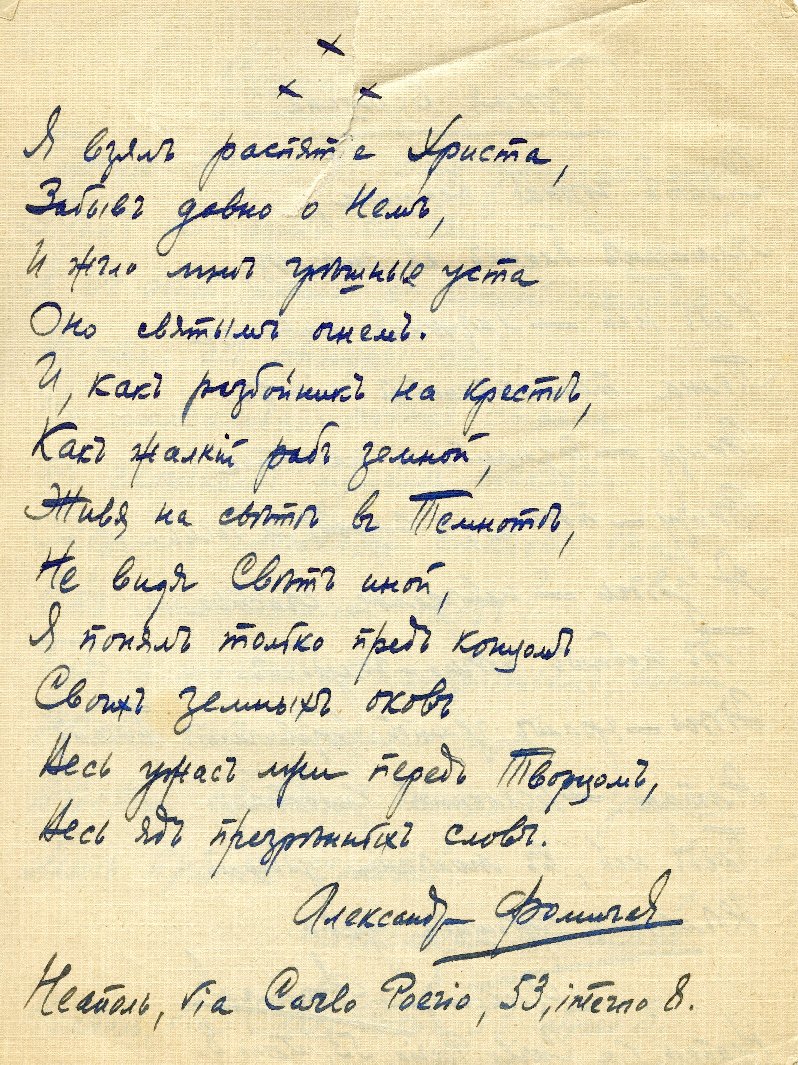 × × ×
Я взялъ распятіе Христа,
Забывъ давно о Немъ,
И жгло мнѣ грѣшныя уста
Оно святымъ огнемъ.
И, какъ разбойникъ на крестѣ,
Какъ жалкій рабъ земной,
Живя на свѣтѣ въ Темнотѣ,
Не видя Свѣтъ иной,
Я понялъ только предъ концомъ
Своихъ земныхъ оковъ
Весь ужасъ лжи передъ Творцомъ,
Весь ядъ презрѣнныхъ словъ.
Александръ Фомичевъ
Неаполь, via Carlo Poerio, 53, interno 8.